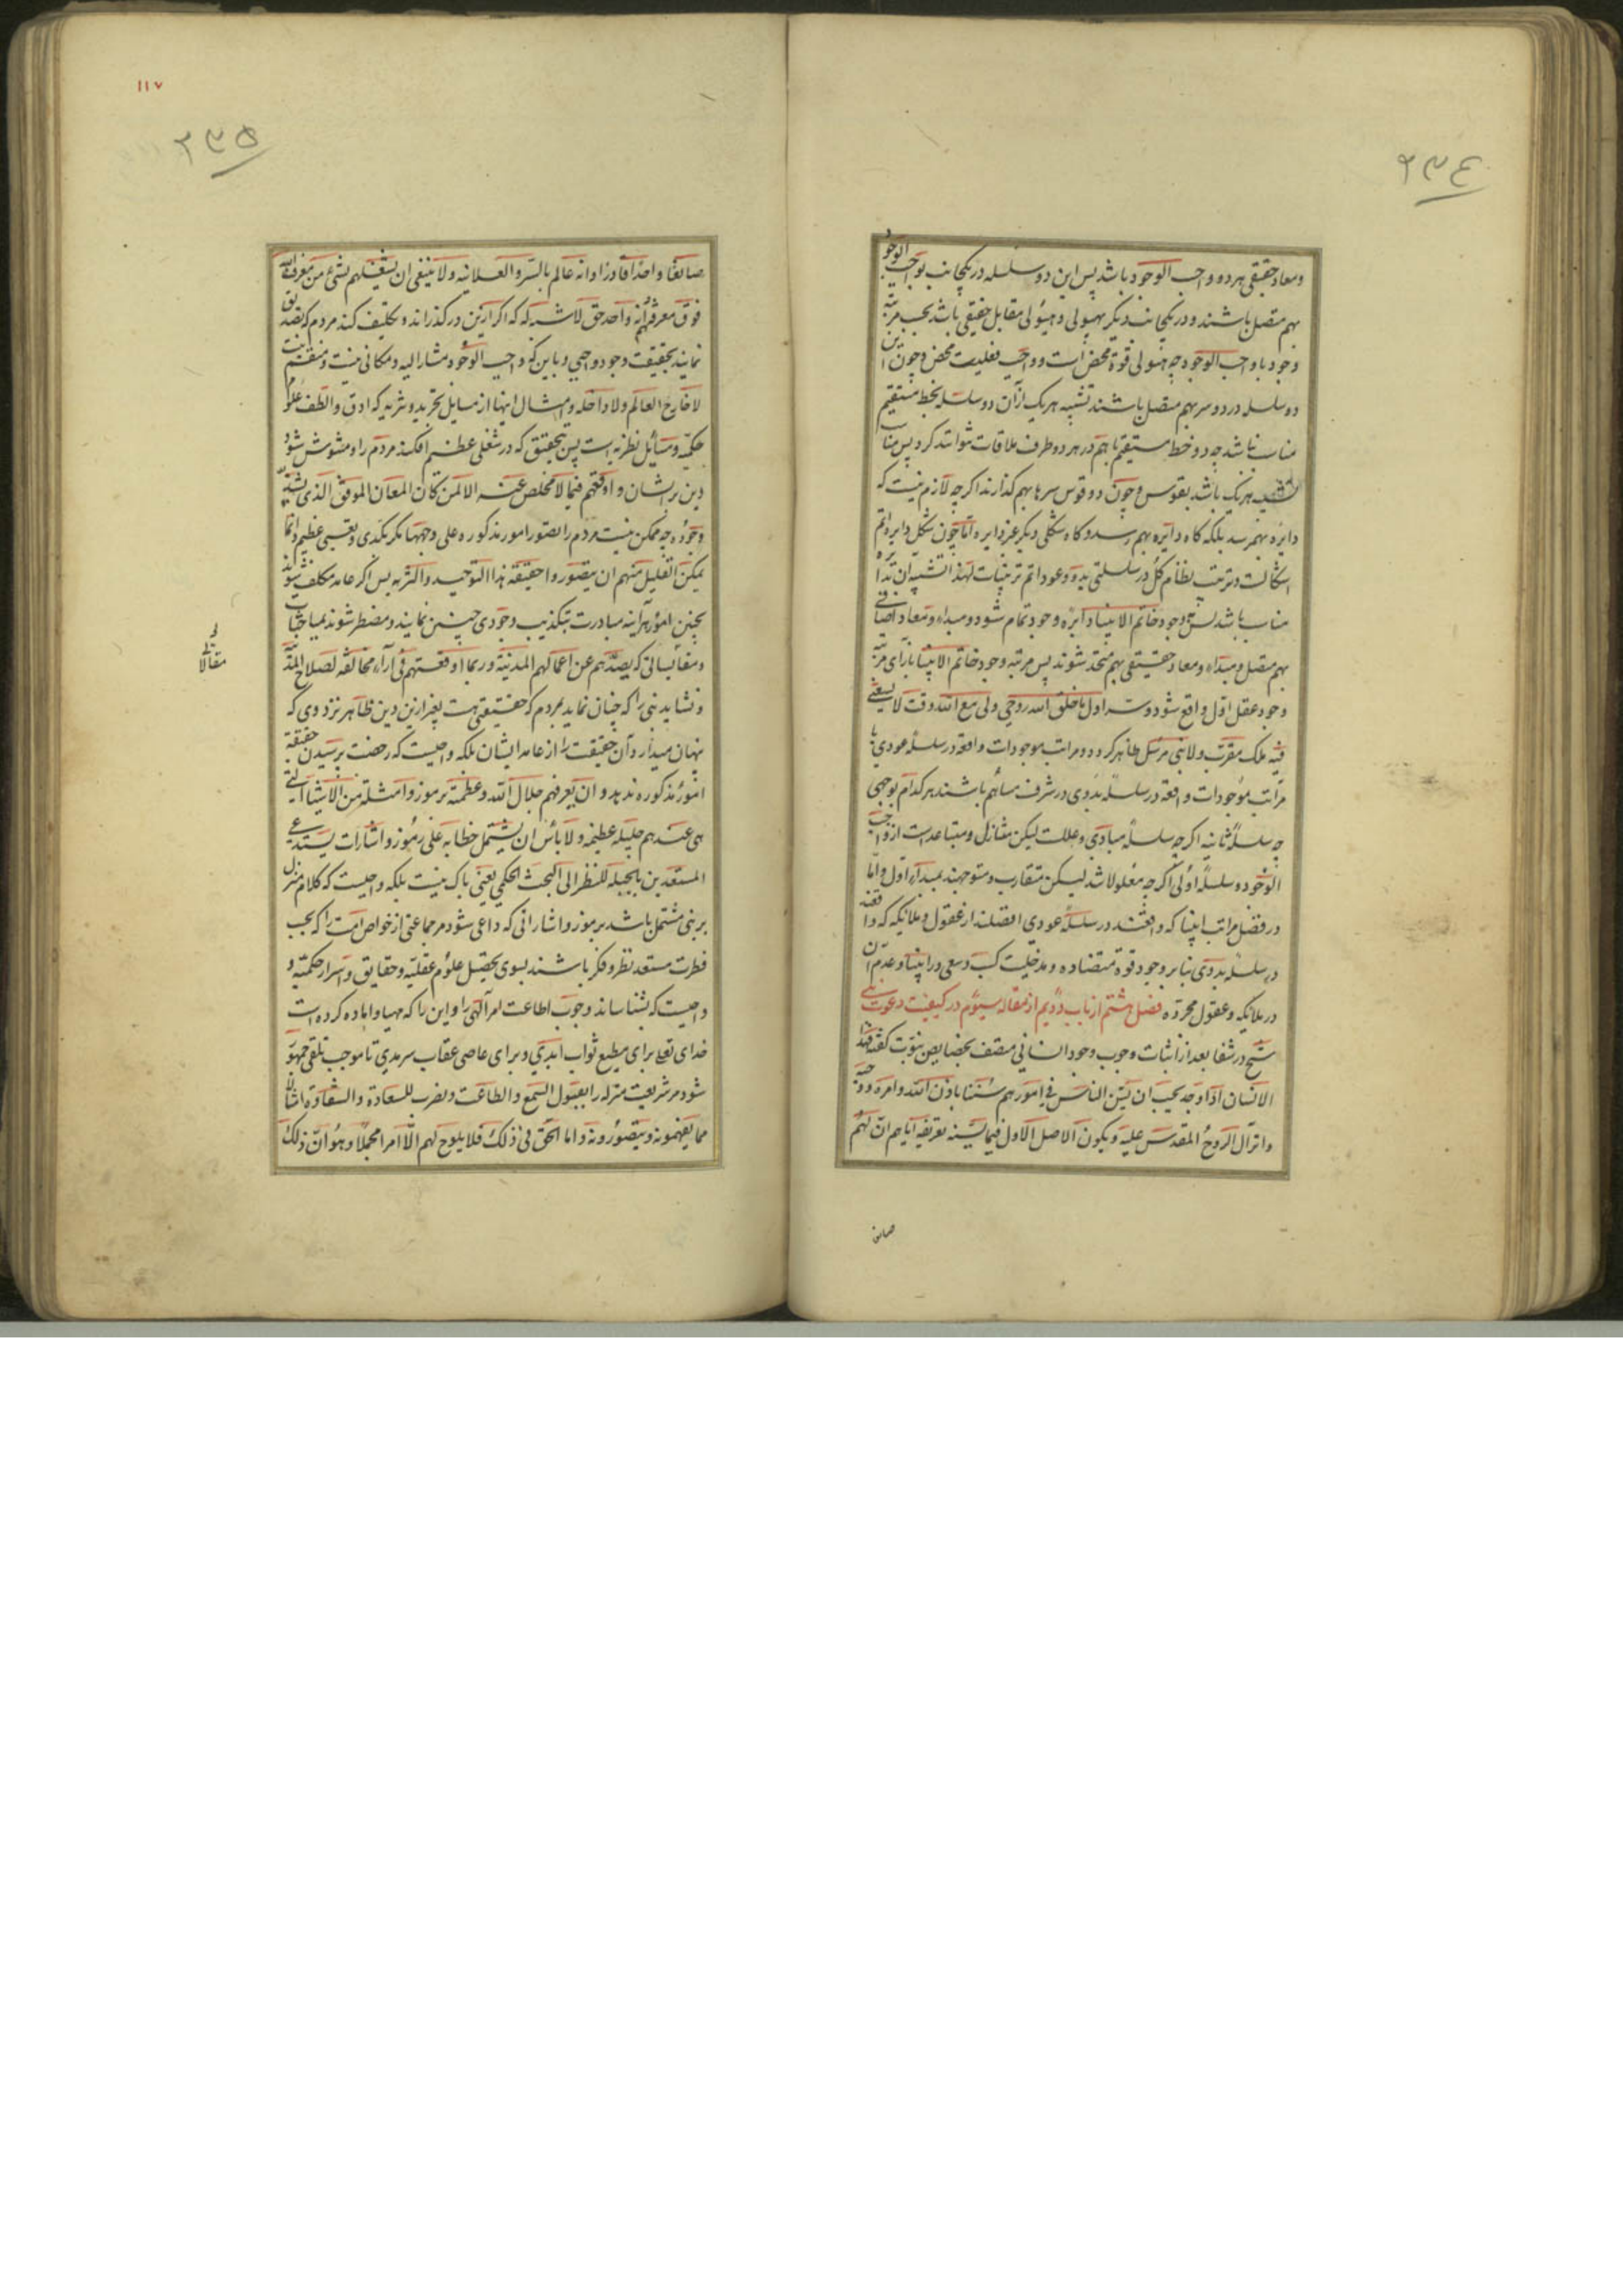 ۲۳۴
ومعاد حقیقی هر دو واجب الوجود باشد پس این دو سلسله در یکجانب بواجب الوجود
بهم متصل باشند و در یکجانب دیگر بهیولی و هیولی مقابل حقیقی باشد بحسب مرتبه
وجود با واجب الوجود چه هیولی قوة محض است و واجب فعلیت محض و چون این
دو سلسله در دو سر بهم متصل باشند تشبیه هر یک از آن دو سلسله بخط مستقیم
مناسب نباشد چه دو خط مستقیم باهم در هر دو طرف ملاقات نتوانند کرد پس مناسب
تشبیه هر یک باشد بقوس و چون دو قوس سرها بهم گذارند اگر چه لازم نیست که
دایره بهم رسد بلکه گاه دایره بهم رسد و گاه شکلی دیگر غیر دایره اما چون شکل دایره اتم
اشکالست و ترتیب نظام کل در سلسلتی بدو و عود اتم ترتیبات لهذا تشبیه آن بدایره
مناسب باشد پس بوجود خاتم الانبیا دایره وجود تمام شود و مبداء و معاد اضافی
بهم متصل و مبداء و معاد حقیقی بهم متحد شوند پس مرتبه وجود خاتم الانبیا بازای مرتبه
وجود عقل اول واقع شود و سر اول ما خلق الله روحی ولی مع الله وقت لا یسعنی
فیه ملک مقرب ولا نبی مرسل ظاهر گردد و مراتب موجودات واقعه در سلسله عودی با
مراتب موجودات واقعه در سلسله بدوی در شرف مساهم باشند هر کدام بوجهی
چه سلسله ثانیه اگر چه سلسله مبادی و عللست لیکن متنازل و متباعدست از واجب
الوجود و سلسله اولی اگر چه معلولا شد لیکن متقارب و متوجهند بمبداء اول و اما
در فضل مراتب انبیا که واقعند در سلسله عودی افضلند از عقول و ملائکه که واقعند
در سلسله بدوی بنا بر وجود قوة متضاده و مدخلیت کسب و سعی در انبیا و عدم آن
در ملائکه و عقول مجرده فصل هشتم از باب دویم از مقاله سیوم در کیفیت دعوت نبی
شیخ در شفا بعد از اثبات وجوب وجود انسانی متصف بخصایص نبوت گفته فهذا
الانسان اذا وجد یجب ان یسن الناس فی امورهم سننا باذن الله وامره ووحیه
وانزال الروح المقدس علیه ویکون الاصل الاول فیما یسنه تعریفه ایاهم ان لهم
صانعا
۱۱۷
۲۳۵
صانعا واحدا قادرا وانه عالم بالسر والعلانیه ولا ینبغی ان یشغلهم بشیء من معرفة الله
فوق معرفته انه واحد حق لا شبه له که اگر ازین درگذراند و تکلیف کند مردم که تصدیق
نمایند بحقیقت وجود واجبی و باین که واجب الوجود مشار الیه و مکانی نیست و منقسم نیست
لا خارج العالم ولا داخله و امثال اینها از مسایل تجرید و تنزیه که ادق و الطف علوم
حکمیه و مسائل نظریه است پس بتحقیق که در شغلی عظیم افکند مردم را و مشوش شود
دین بر ایشان و اوقعهم فیما لا مخلص عنه الا لمن کان المعان الموفق الذی یشذ
وجوده چه ممکن نیست مردم را تصور امور مذکوره علی وجهها مگر بکدی و تعبی عظیم وانما
یمکن القلیل منهم ان یتصوروا حقیقة هذا التوحید والتنزیه پس اگر عامه مکلف شوند
بچنین امور هر آینه مبادرت بتکذیب وجودی چنین نمایند و مضطر شوند بمباحثات
ومقایساتی که یصدهم عن اعمالهم المدنیة وربما اوقعتهم فی آراء مخالفة لصلاح المدینه
و نشاید نبی را که چنان نماید بمردم که حقیقتی هست بغیر ازین دین ظاهر نزد وی که
پنهان میدارد آن حقیقت را از عامه ایشان بلکه واجبست که رخصت پرسیدن حقیقة
امور مذکوره ندهد و ان یعرفهم جلال الله وعظمته برموز وامثلة من الاشیاء التی
هی عندهم جلیله عظیمه ولا باس ان یشتمل خطابه علی رموز واشارات یستدعی
المستعدین بالجبله للنظر الی البحث الحکمی یعنی باک نیست بلکه واجبست که کلام منزل
بر نبی مشتمل باشد برموز و اشاراتی که داعی شود مر جماعتی از خواص امت را که بحسب
فطرت مستعد نظر و فکر باشند بسوی تحصیل علوم عقلیه و حقایق و اسرار حکمیه و
واجبست که بشناساند وجوب اطاعت امر الهی را و این را که مهیا و اماده کرده است
خدای تعالی برای مطیع ثواب ابدی و برای عاصی عقاب سرمدی تا موجب تلقی جمهور
شود مر شریعت منزله را بقبول السمع والطاعت وضرب للسعادة والشقاوة امثالا
مما یفهمونه ویتصورونه واما الحق فی ذلک فلا یلوح لهم الا امرا مجملا وهو ان ذلک